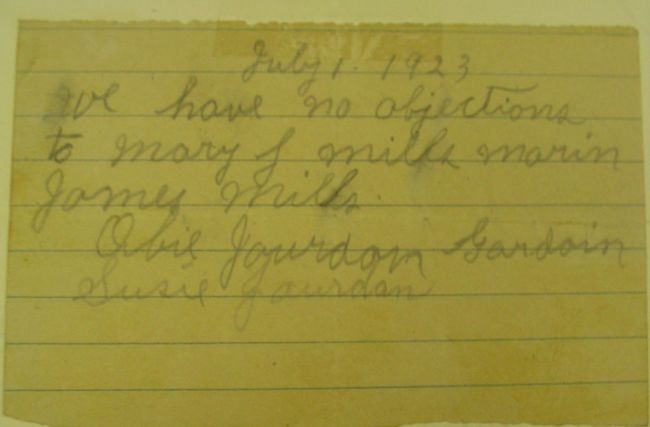 July 1. 1923
we have no objections
to mary J mills marin
James mills.
Abie Jourdan Gardain
Susie Jourdan